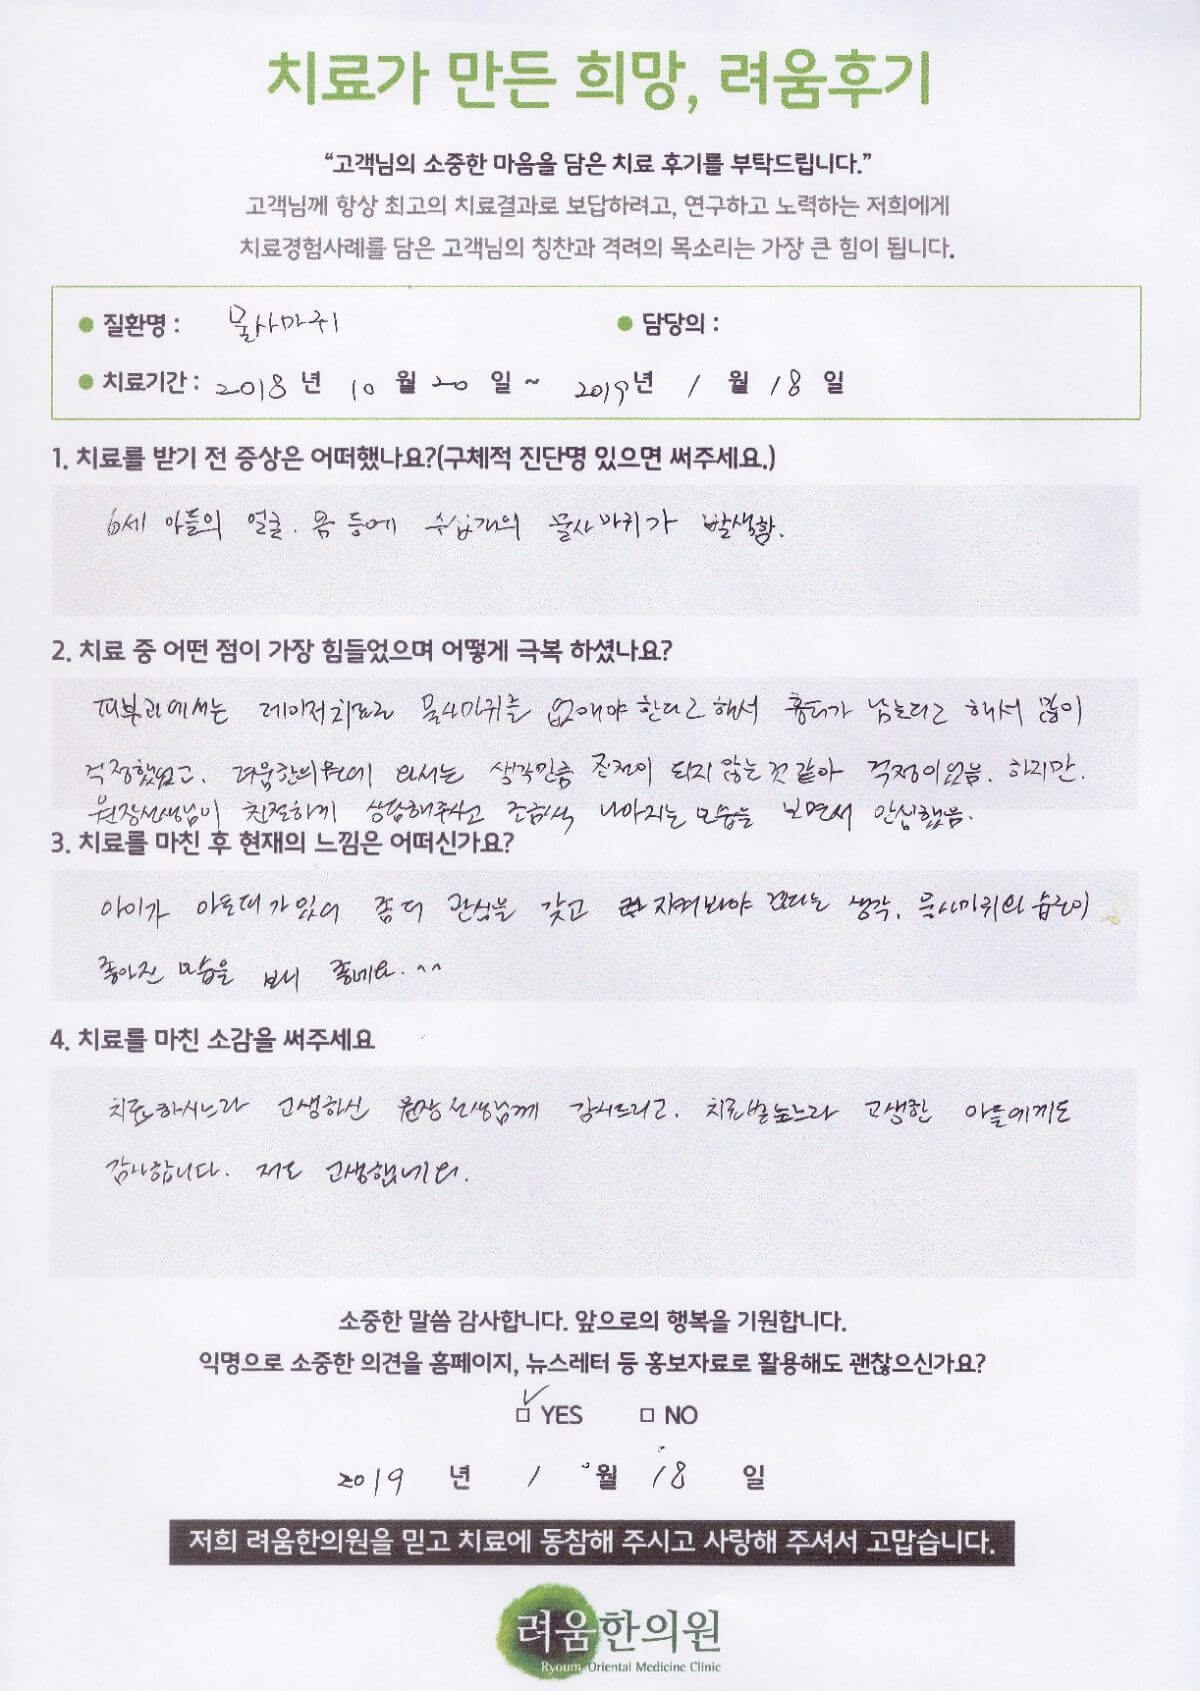 치료가 만든 희망, 려움후기
“고객님의 소중한 마음을 담은 치료 후기를 부탁드립니다.”
고객님께 항상 최고의 치료결과로 보답하려고, 연구하고 노력하는 저희에게
치료경험사례를 담은 고객님의 칭찬과 격려의 목소리는 가장 큰 힘이 됩니다.
● 질환명 : 물사마귀 ● 담당의 :
● 치료기간 : 2018 년 10 월 20 일 ~ 2019년 1 월 18 일
1. 치료를 받기 전 증상은 어떠했나요?(구체적 진단명 있으면 써주세요.)
6세 아들의 얼굴. 몸 등에 수십개의 물사마귀가 발생함.
2. 치료 중 어떤 점이 가장 힘들었으며 어떻게 극복 하셨나요?
피부과에서는 레이저치료로 물사마귀를 없애야 한다고 해서 흉터가 남는다고 해서 많이
걱정했었고. 려움한의원에 와서는 생각만큼 진전이 되지 않는것 같아 걱정이었음. 하지만.
원장선생님이 친절하게 상담해주시고 조금씩 나아지는 모습을 보면서 안심했음.
3. 치료를 마친 후 현재의 느낌은 어떠신가요?
아이가 아토피가 있어 좀 더 관심을 갖고 지켜봐야 겠다는 생각. 물사마귀와 습진이
좋아진 모습을 보니 좋네요. ^^
4. 치료를 마친 소감을 써주세요
치료하시느라 고생하신 원장선생님께 감사드리고. 치료받느라 고생한 아들에게도
감사합니다. 저도 고생했네요.
소중한 말씀 감사합니다. 앞으로의 행복을 기원합니다.
익명으로 소중한 의견을 홈페이지, 뉴스레터 등 홍보자료로 활용해도 괜찮으신가요?
☑ YES □ NO
2019 년 1 월 18 일
저희 려움한의원을 믿고 치료에 동참해 주시고 사랑해 주셔서 고맙습니다.
려움한의원
Ryoum Oriental Medicine Clinic